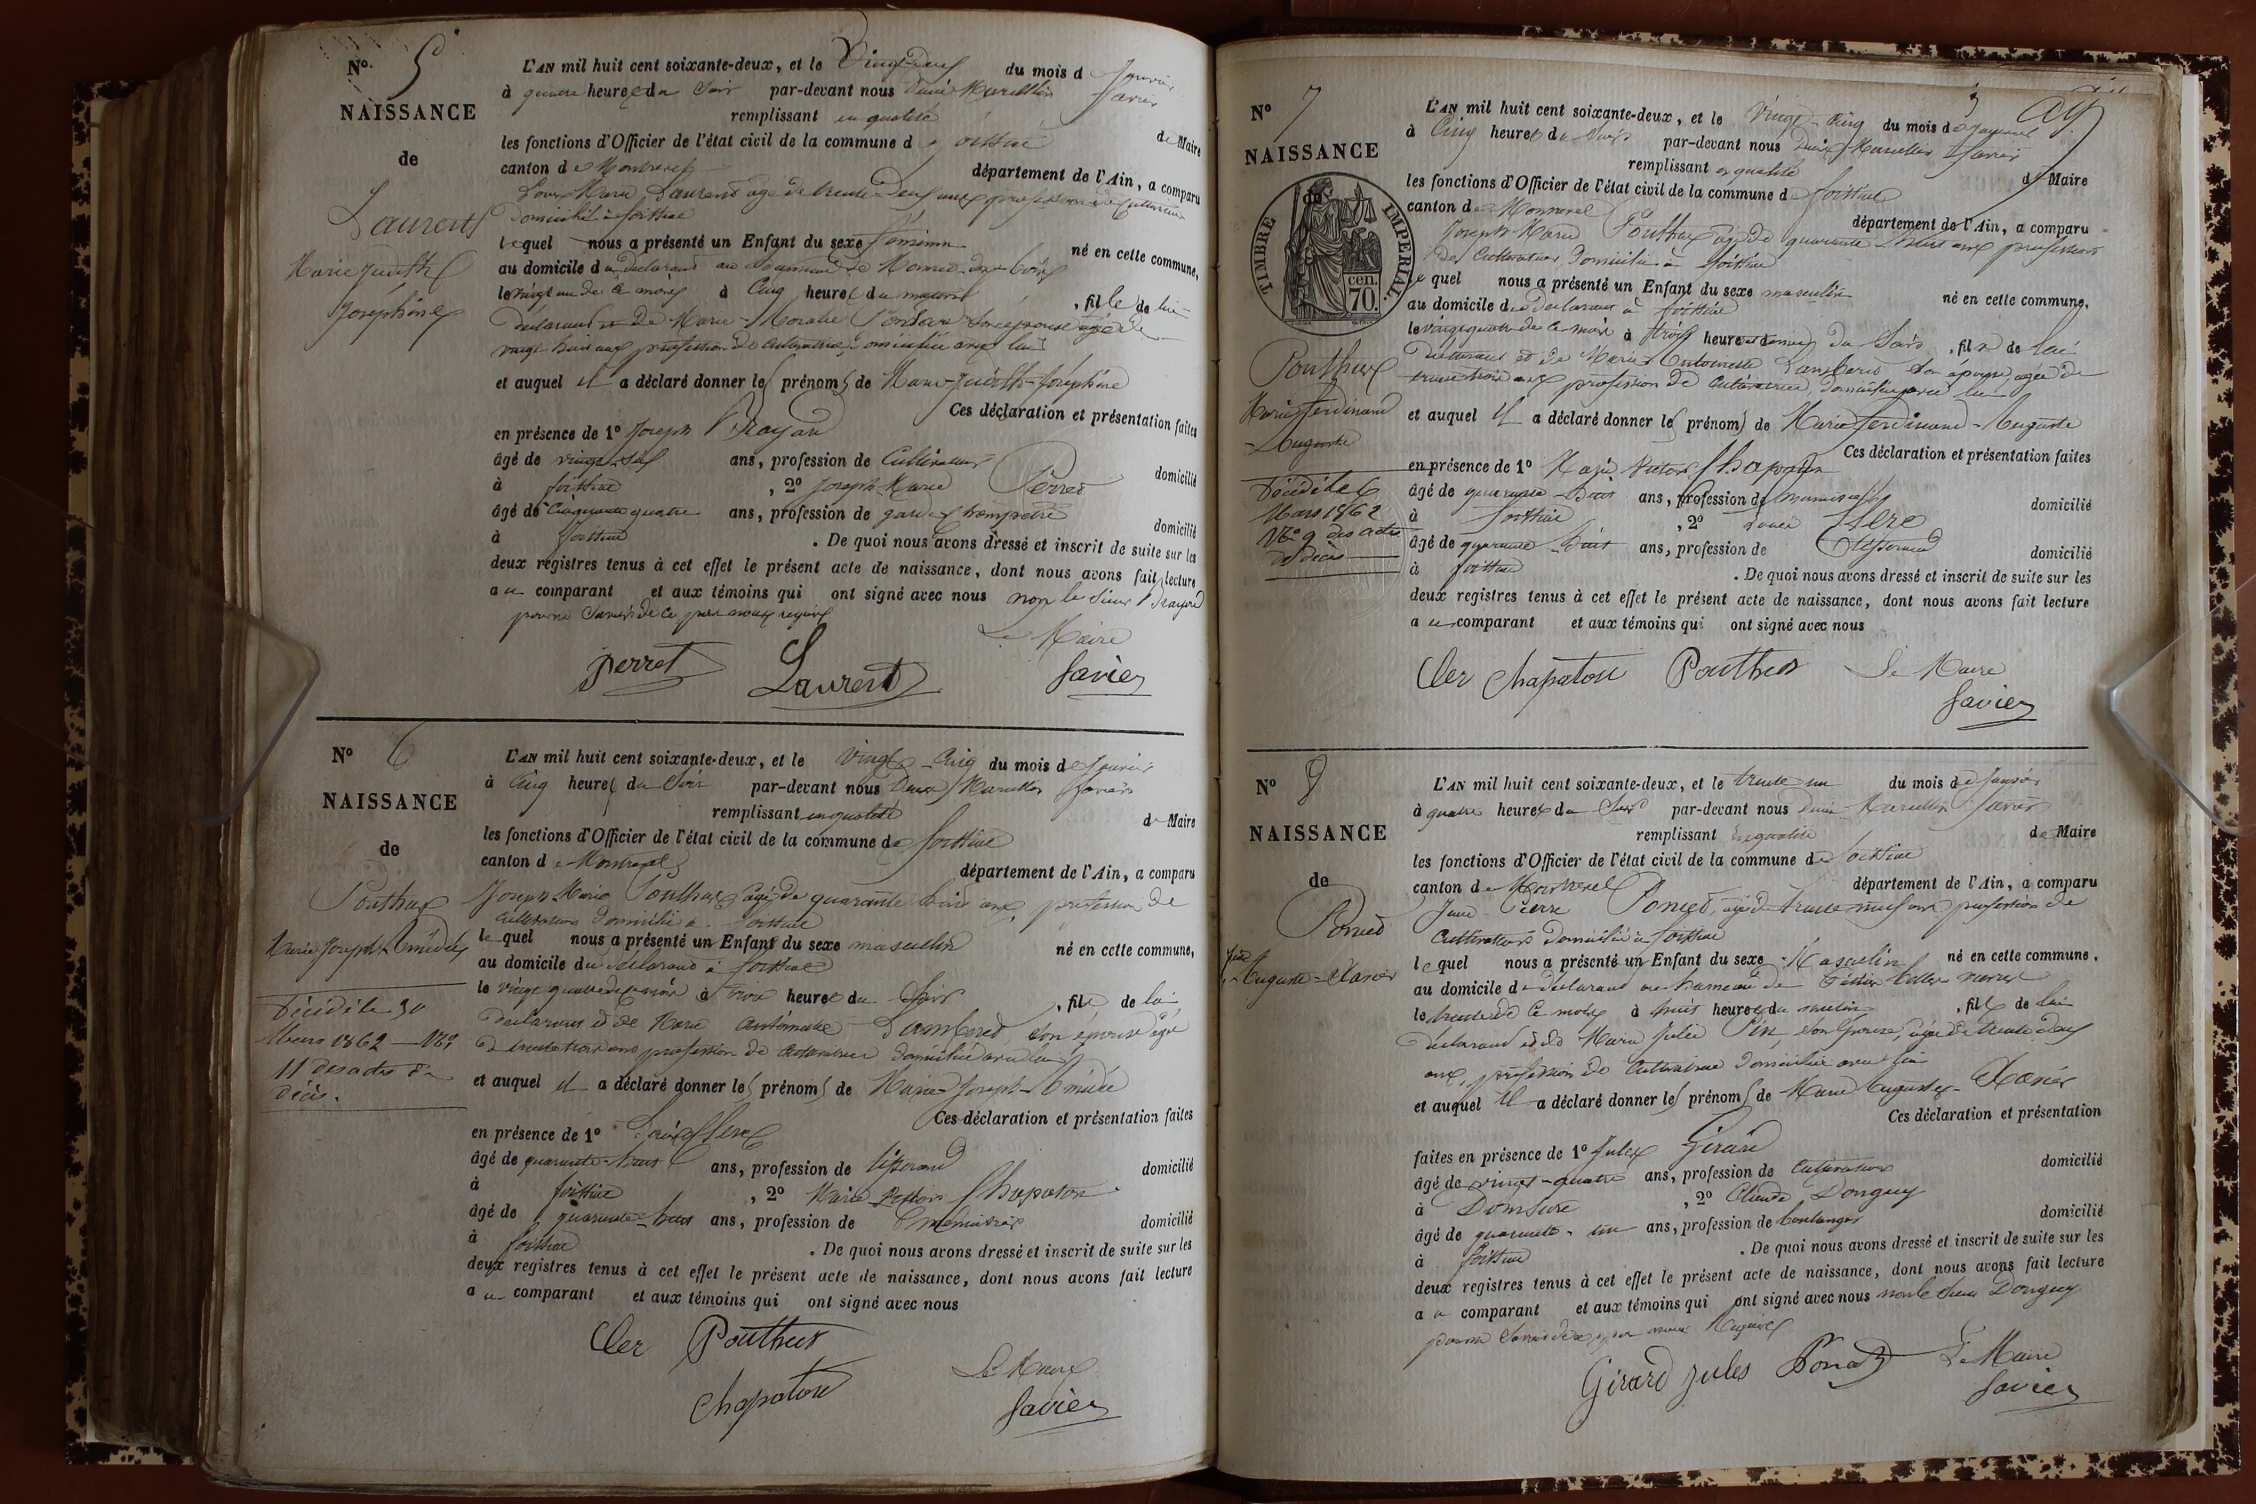 N° 5
NAISSANCE
de
Laurent
Marie Judith
Joséphine
L'AN mil huit cent soixante-deux, et le vingt deux du mois de Janvier
à quatre heures du Soir par-devant nous Denis Marcellin Savier
remplissant en qualité de Maire
les fonctions d'Officier de l'état civil de la commune de foissiat
canton de Montrevel département de l'Ain, a comparu
Louis Marie Laurent agé de trente deux ans profession de Cultivateur
Domicilié à foissiat
lequel nous a présenté un Enfant du sexe féminin né en cette commune,
au domicile du déclarant au
le vingt un de ce mois à Cinq heures du matin, fille de lui
déclarant et de Marie son épouse agée de
vingt huit ans profession de cultivatrice domiciliée avec lui
et auquel il a déclaré donner les prénoms de Marie-Judith-Joséphine
Ces déclaration et présentation faites
en présence de 1° Joseph Brayard
âgé de vingt six ans, profession de Cultivateur domicilié
à foissiat, 2° Joseph Marie Perret
âgé de Cinquante quatre ans, profession de garde champêtre domicilié
à foissiat. De quoi nous avons dressé et inscrit de suite sur les
deux registres tenus à cet effet le présent acte de naissance, dont nous avons fait lecture
au comparant et aux témoins qui ont signé avec nous non le sieur Brayard
pour ne savoir de ce par nous requis
Le Maire
Perret Laurent Savier
N° 6
NAISSANCE
de
Pouthus
Marie Joseph Amédée
Décédé le 30
Mars 1862 N°
11 des actes de
décès.
L'AN mil huit cent soixante-deux, et le vingt-Cinq du mois de Janvier
à Cinq heures du Soir par-devant nous Denis Marcellin Savier
remplissant en qualité de Maire
les fonctions d'Officier de l'état civil de la commune de foissiat
canton de Montrevel département de l'Ain, a comparu
Joseph Marie Pouthus agé de quarante trois ans, profession de
Cultivateur domicilié à foissiat
lequel nous a présenté un Enfant du sexe masculin né en cette commune,
au domicile du déclarant à foissiat
le vingt quatre de janvier à trois heures du Soir, fils de lui
déclarant et de Marie Antoinette Lambert son épouse agée
de trente trois ans profession de cultivatrice domiciliée avec lui
et auquel il a déclaré donner les prénoms de Marie-Joseph-Amédée
Ces déclaration et présentation faites
en présence de 1° Clerc
âgé de quarante-huit ans, profession de tisserand domicilié
à foissiat, 2° Marie Chapaton
âgé de quarante-huit ans, profession de menuisier domicilié
à foissiat. De quoi nous avons dressé et inscrit de suite sur les
deux registres tenus à cet effet le présent acte de naissance, dont nous avons fait lecture
au comparant et aux témoins qui ont signé avec nous
Cler Pouthus
Le Maire
Chapaton Savier
N° 7
NAISSANCE
de
TIMBRE IMPERIAL.
70. cen.
Pouthus
Marie ferdinand
Auguste
Décédé le
Mars 1862
N° 9 des actes
de décès
L'AN mil huit cent soixante-deux, et le Vingt-Cinq du mois de Janvier
à Cinq heures du Soir par-devant nous Denis Marcellin Savier
remplissant en qualité de Maire
les fonctions d'Officier de l'état civil de la commune de foissiat
canton de Montrevel département de l'Ain, a comparu
Joseph Marie Pouthus agé de quarante trois ans profession
de Cultivateur domicilié à foissiat
lequel nous a présenté un Enfant du sexe masculin né en cette commune,
au domicile du déclarant à foissiat
le vingt quatre de ce mois à trois heures et demie du Soir, fils de lui
déclarant et de Marie Antoinette Lambert son épouse, agée de
trente trois ans profession de cultivatrice domiciliée avec lui
et auquel il a déclaré donner les prénoms de Marie ferdinand-Auguste
Ces déclaration et présentation faites
en présence de 1° Marie Chapaton
âgé de quarante-huit ans, profession de menuisier domicilié
à foissiat, 2° Clerc
âgé de quarante huit ans, profession de tisserand domicilié
à foissiat. De quoi nous avons dressé et inscrit de suite sur les
deux registres tenus à cet effet le présent acte de naissance, dont nous avons fait lecture
au comparant et aux témoins qui ont signé avec nous
Cler Chapaton Pouthus Le Maire
Savier
N° 8
NAISSANCE
de
Poncet
Auguste-Xavier
L'AN mil huit cent soixante-deux, et le trente un du mois de Janvier
à quatre heures du Soir par-devant nous Denis Marcellin Savier
remplissant en qualité de Maire
les fonctions d'Officier de l'état civil de la commune de foissiat
canton de Montrevel département de l'Ain, a comparu
Pierre Poncet, agé de trente neuf ans profession de
Cultivateur domicilié à foissiat
lequel nous a présenté un Enfant du sexe Masculin né en cette commune,
au domicile du déclarant au hameau de
le trente de ce mois à huit heures du matin, fils de lui
déclarant et de Marie Julie Pin, son épouse, agée de trente deux
ans, profession de Cultivatrice domiciliée avec lui
et auquel il a déclaré donner les prénoms de Marie Auguste-Xavier
Ces déclaration et présentation
faites en présence de 1° Jules Girard
âgé de vingt-quatre ans, profession de Cultivateur domicilié
à Domsure, 2° Claude Donguy
âgé de quarante-un ans, profession de boulanger domicilié
à foissiat. De quoi nous avons dressé et inscrit de suite sur les
deux registres tenus à cet effet le présent acte de naissance, dont nous avons fait lecture
au comparant et aux témoins qui ont signé avec nous non le sieur Donguy
pour ne savoir de ce par nous requis
Girard Jules Poncet Le Maire
Savier